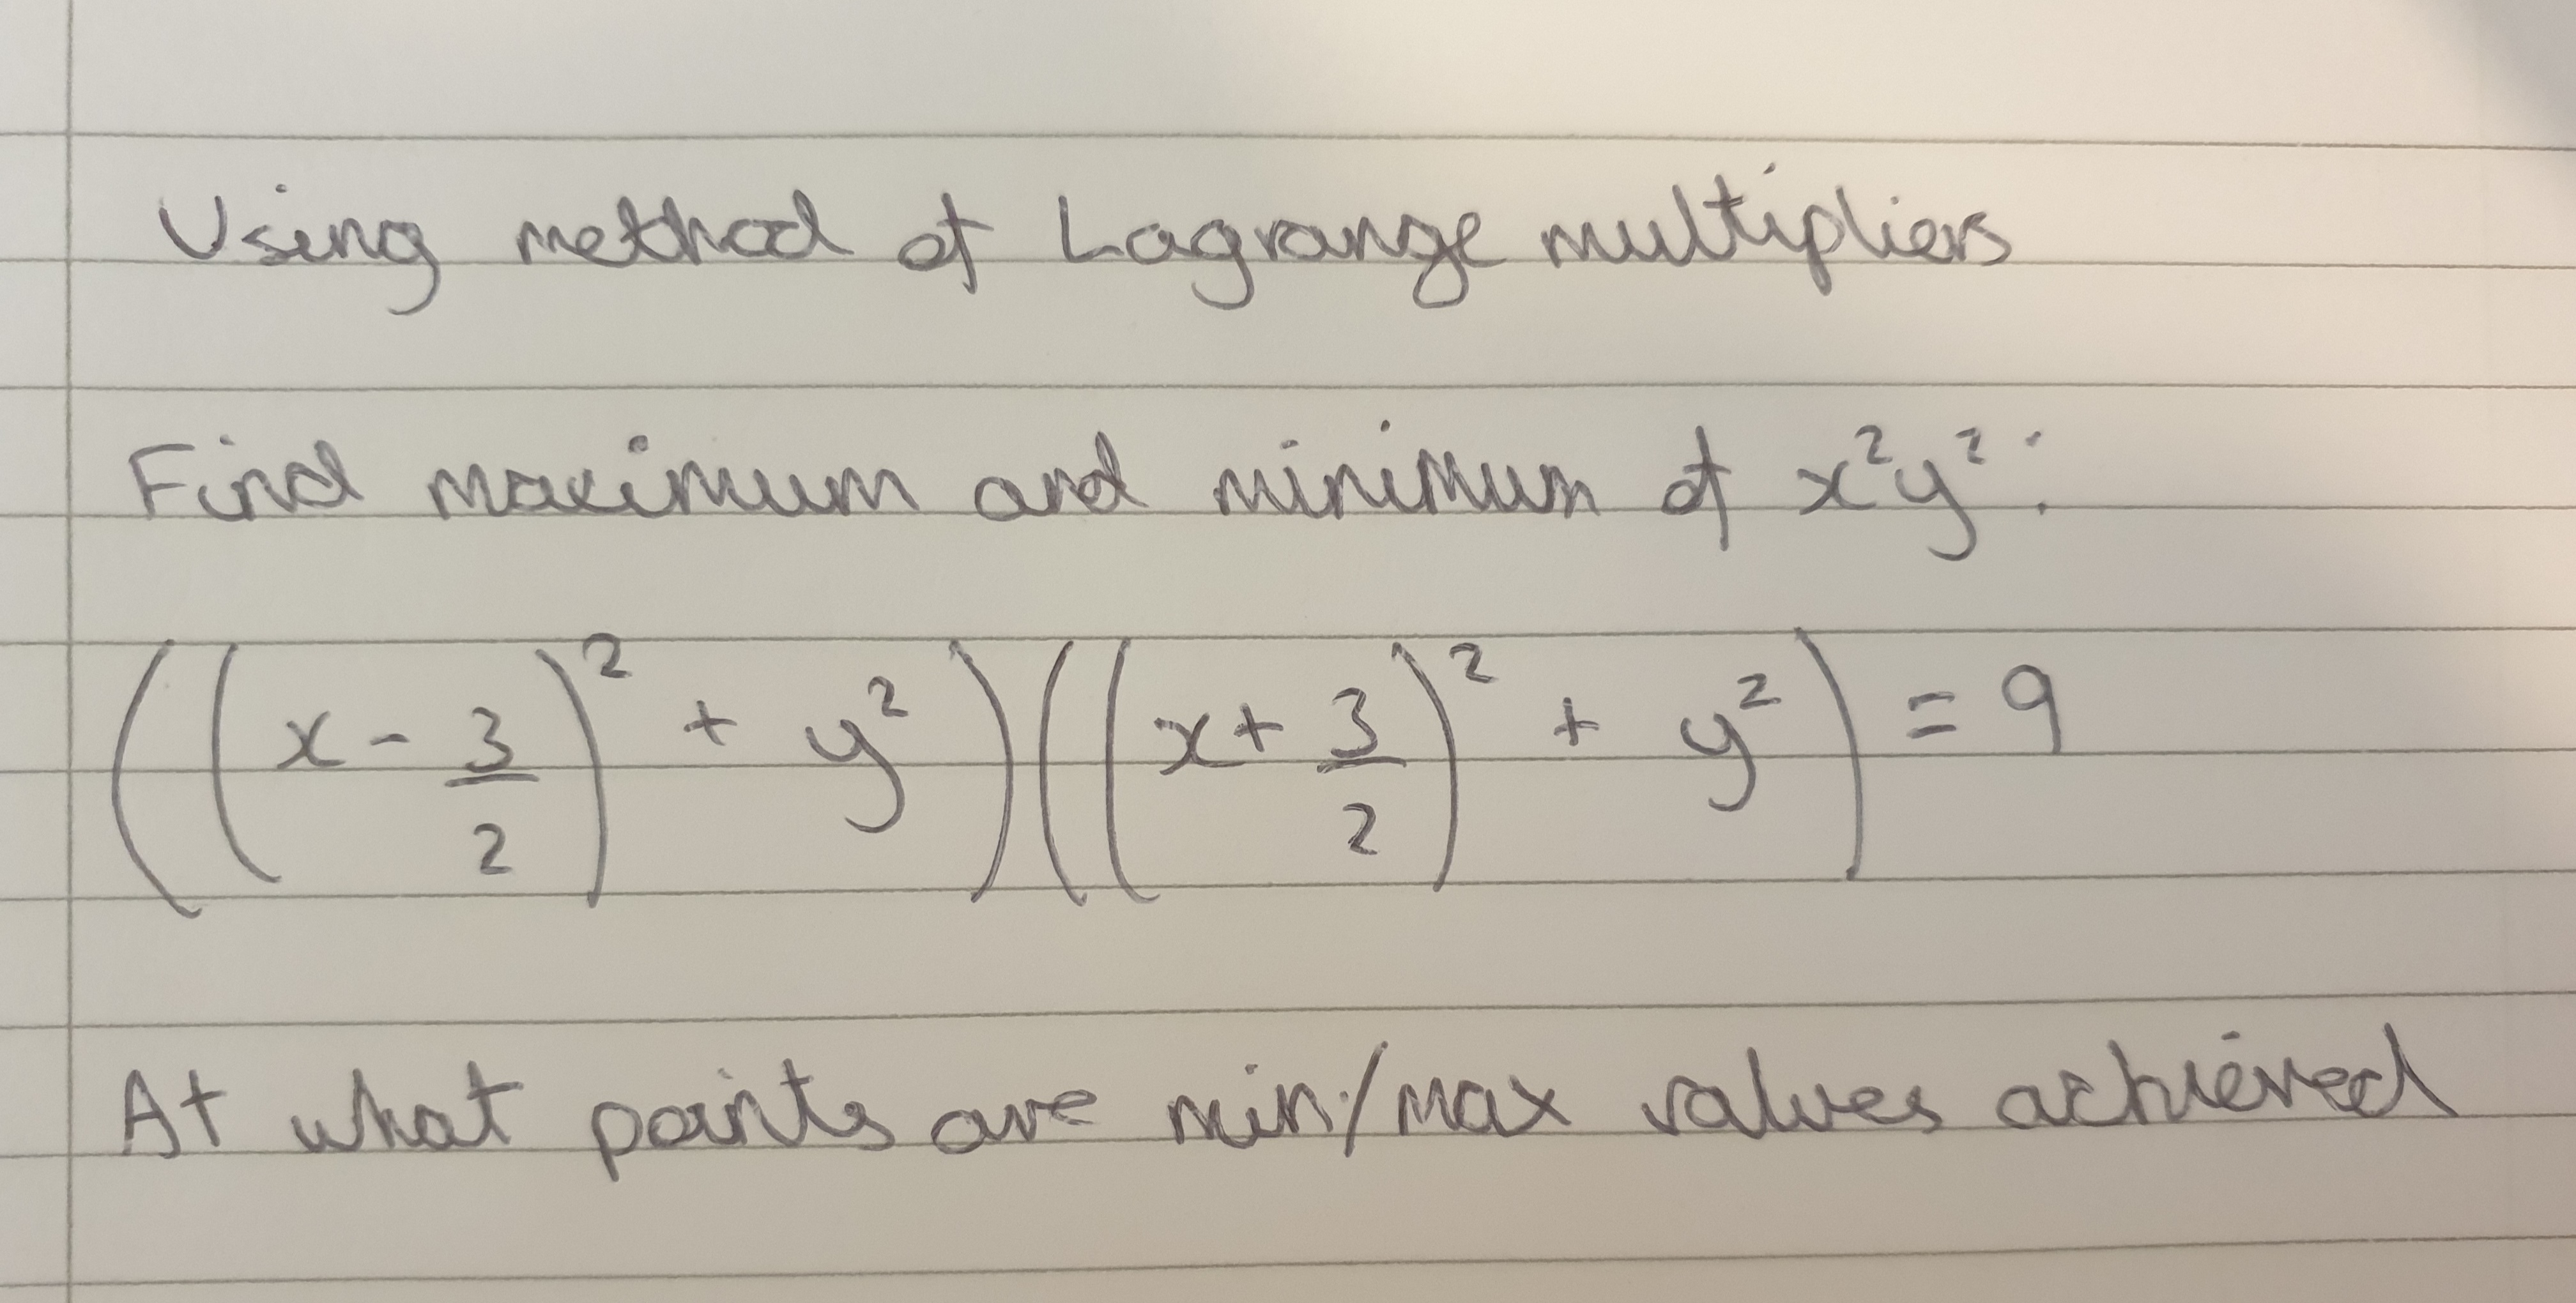 Using method of Lagrange multipliers
Find maximum and minimum of x²y²:
((x - 3/2)² + y²)((x + 3/2)² + y²) = 9
At what points are min/max values achieved